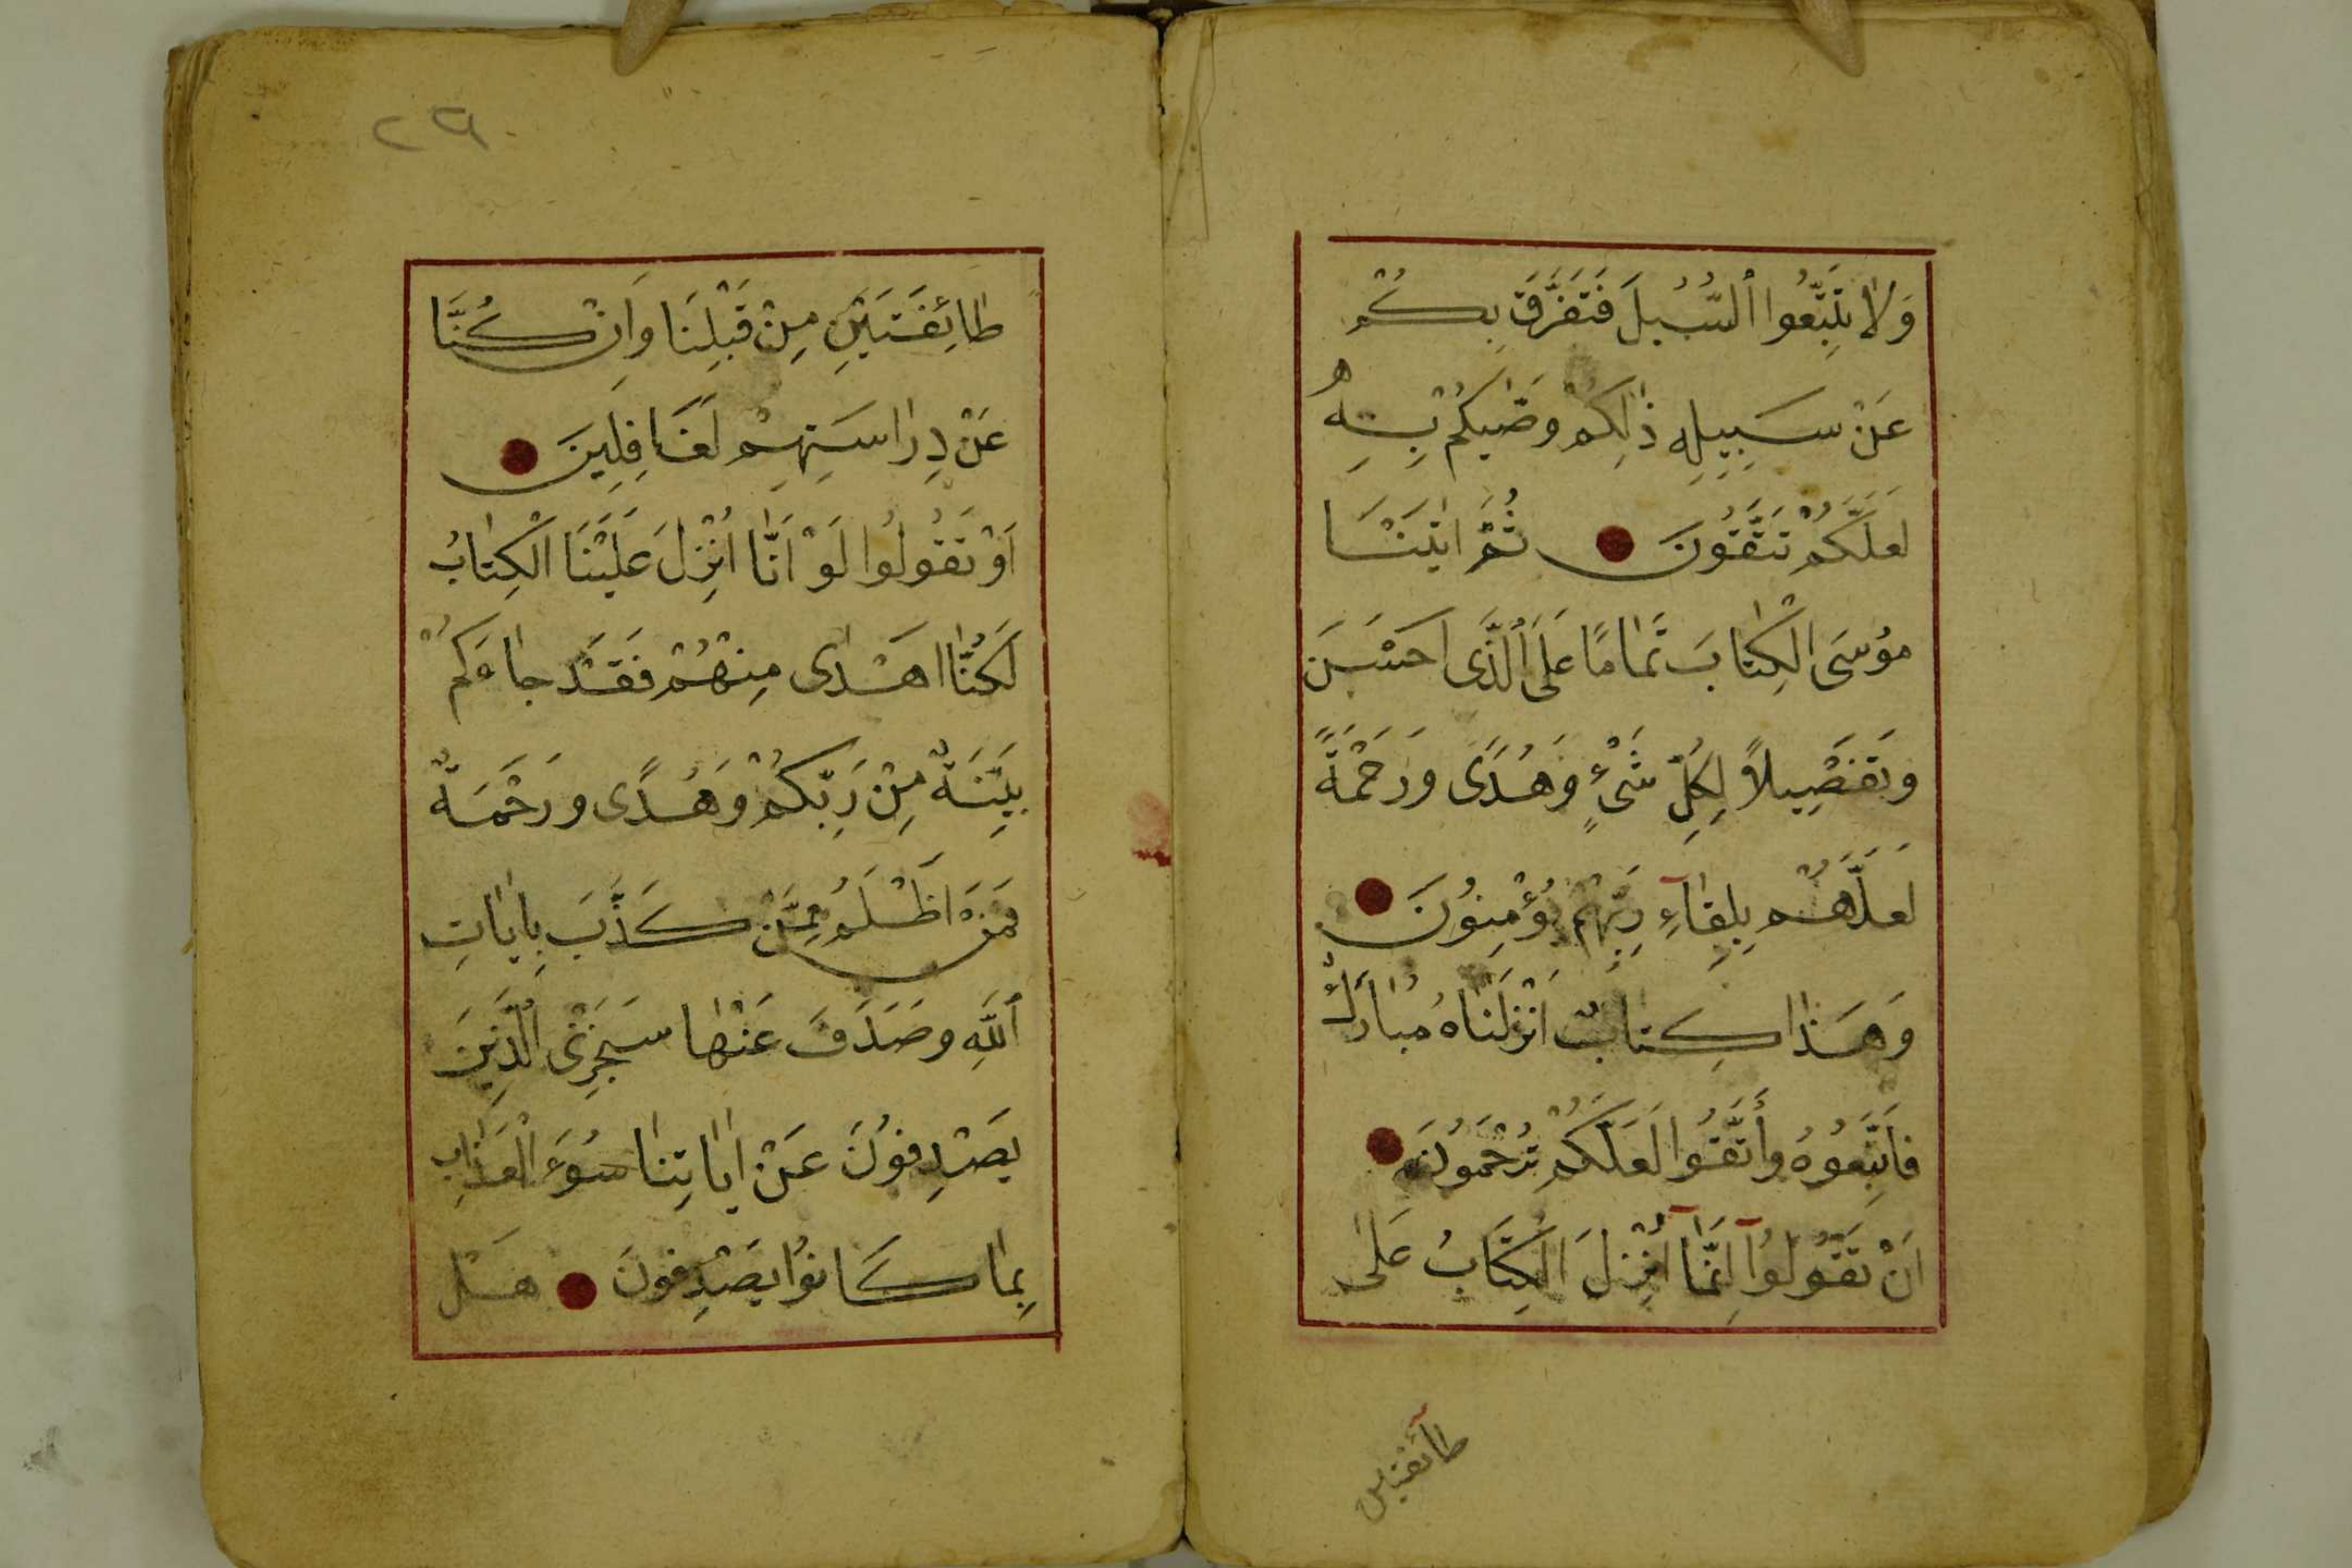 وَلَا تَتَّبِعُوا ٱلسُّبُلَ فَتَفَرَّقَ بِكُمْ
عَنْ سَبِيلِهِ ذٰلِكُمْ وَصّٰيكُمْ بِهِ
لَعَلَّكُمْ تَتَّقُونَ ثُمَّ اٰتَيْنَا
مُوسَى الْكِتٰابَ تَمٰامًا عَلَى ٱلَّذَى اَحْسَنَ
وَتَفْصِيلاً لِكُلِّ شَيْءٍ وَهُدًى وَرَحْمَةً
لَعَلَّهُمْ بِلِقٰآءِ رَبِّهِمْ يُؤْمِنُونَ
وَهَذٰا كِتٰابٌ اَنْزَلْنٰاهُ مُبٰارَكٌ
فَاتَّبِعُوهُ وَاتَّقُوا لَعَلَّكُمْ تُرْحَمُونَ
اَنْ تَقُولُوآ اِنَّمَآ اُنْزِلَ الْكِتَابُ عَلٰى
طآئفتين
٢٩
طٰائِفَتَيْنِ مِنْ قَبْلِنَا وَاِنْ كُنَّا
عَنْ دِرٰاسَتِهِمْ لَغَافِلِينَ
اَوْ تَقُولُوا لَوْ اَنّٰا اُنْزِلَ عَلَيْنَا الْكِتٰابُ
لَكُنّٰا اَهْدٰى مِنْهُمْ فَقَدْ جٰاءَكُمْ
بَيِّنَةٌ مِنْ رَبِّكُمْ وَهُدًى وَرَحْمَةٌ
فَمَنْ اَظْلَمُ مِمَّنْ كَذَّبَ بِاٰيٰاتِ
ٱللَّهِ وَصَدَفَ عَنْهٰا سَنَجْزِى ٱلَّذِينَ
يَصْدِفُونَ عَنْ اٰيٰاتِنٰا سُوءَ الْعَذٰابِ
بِمٰا كَانُوا يَصْدِفُونَ هَلْ